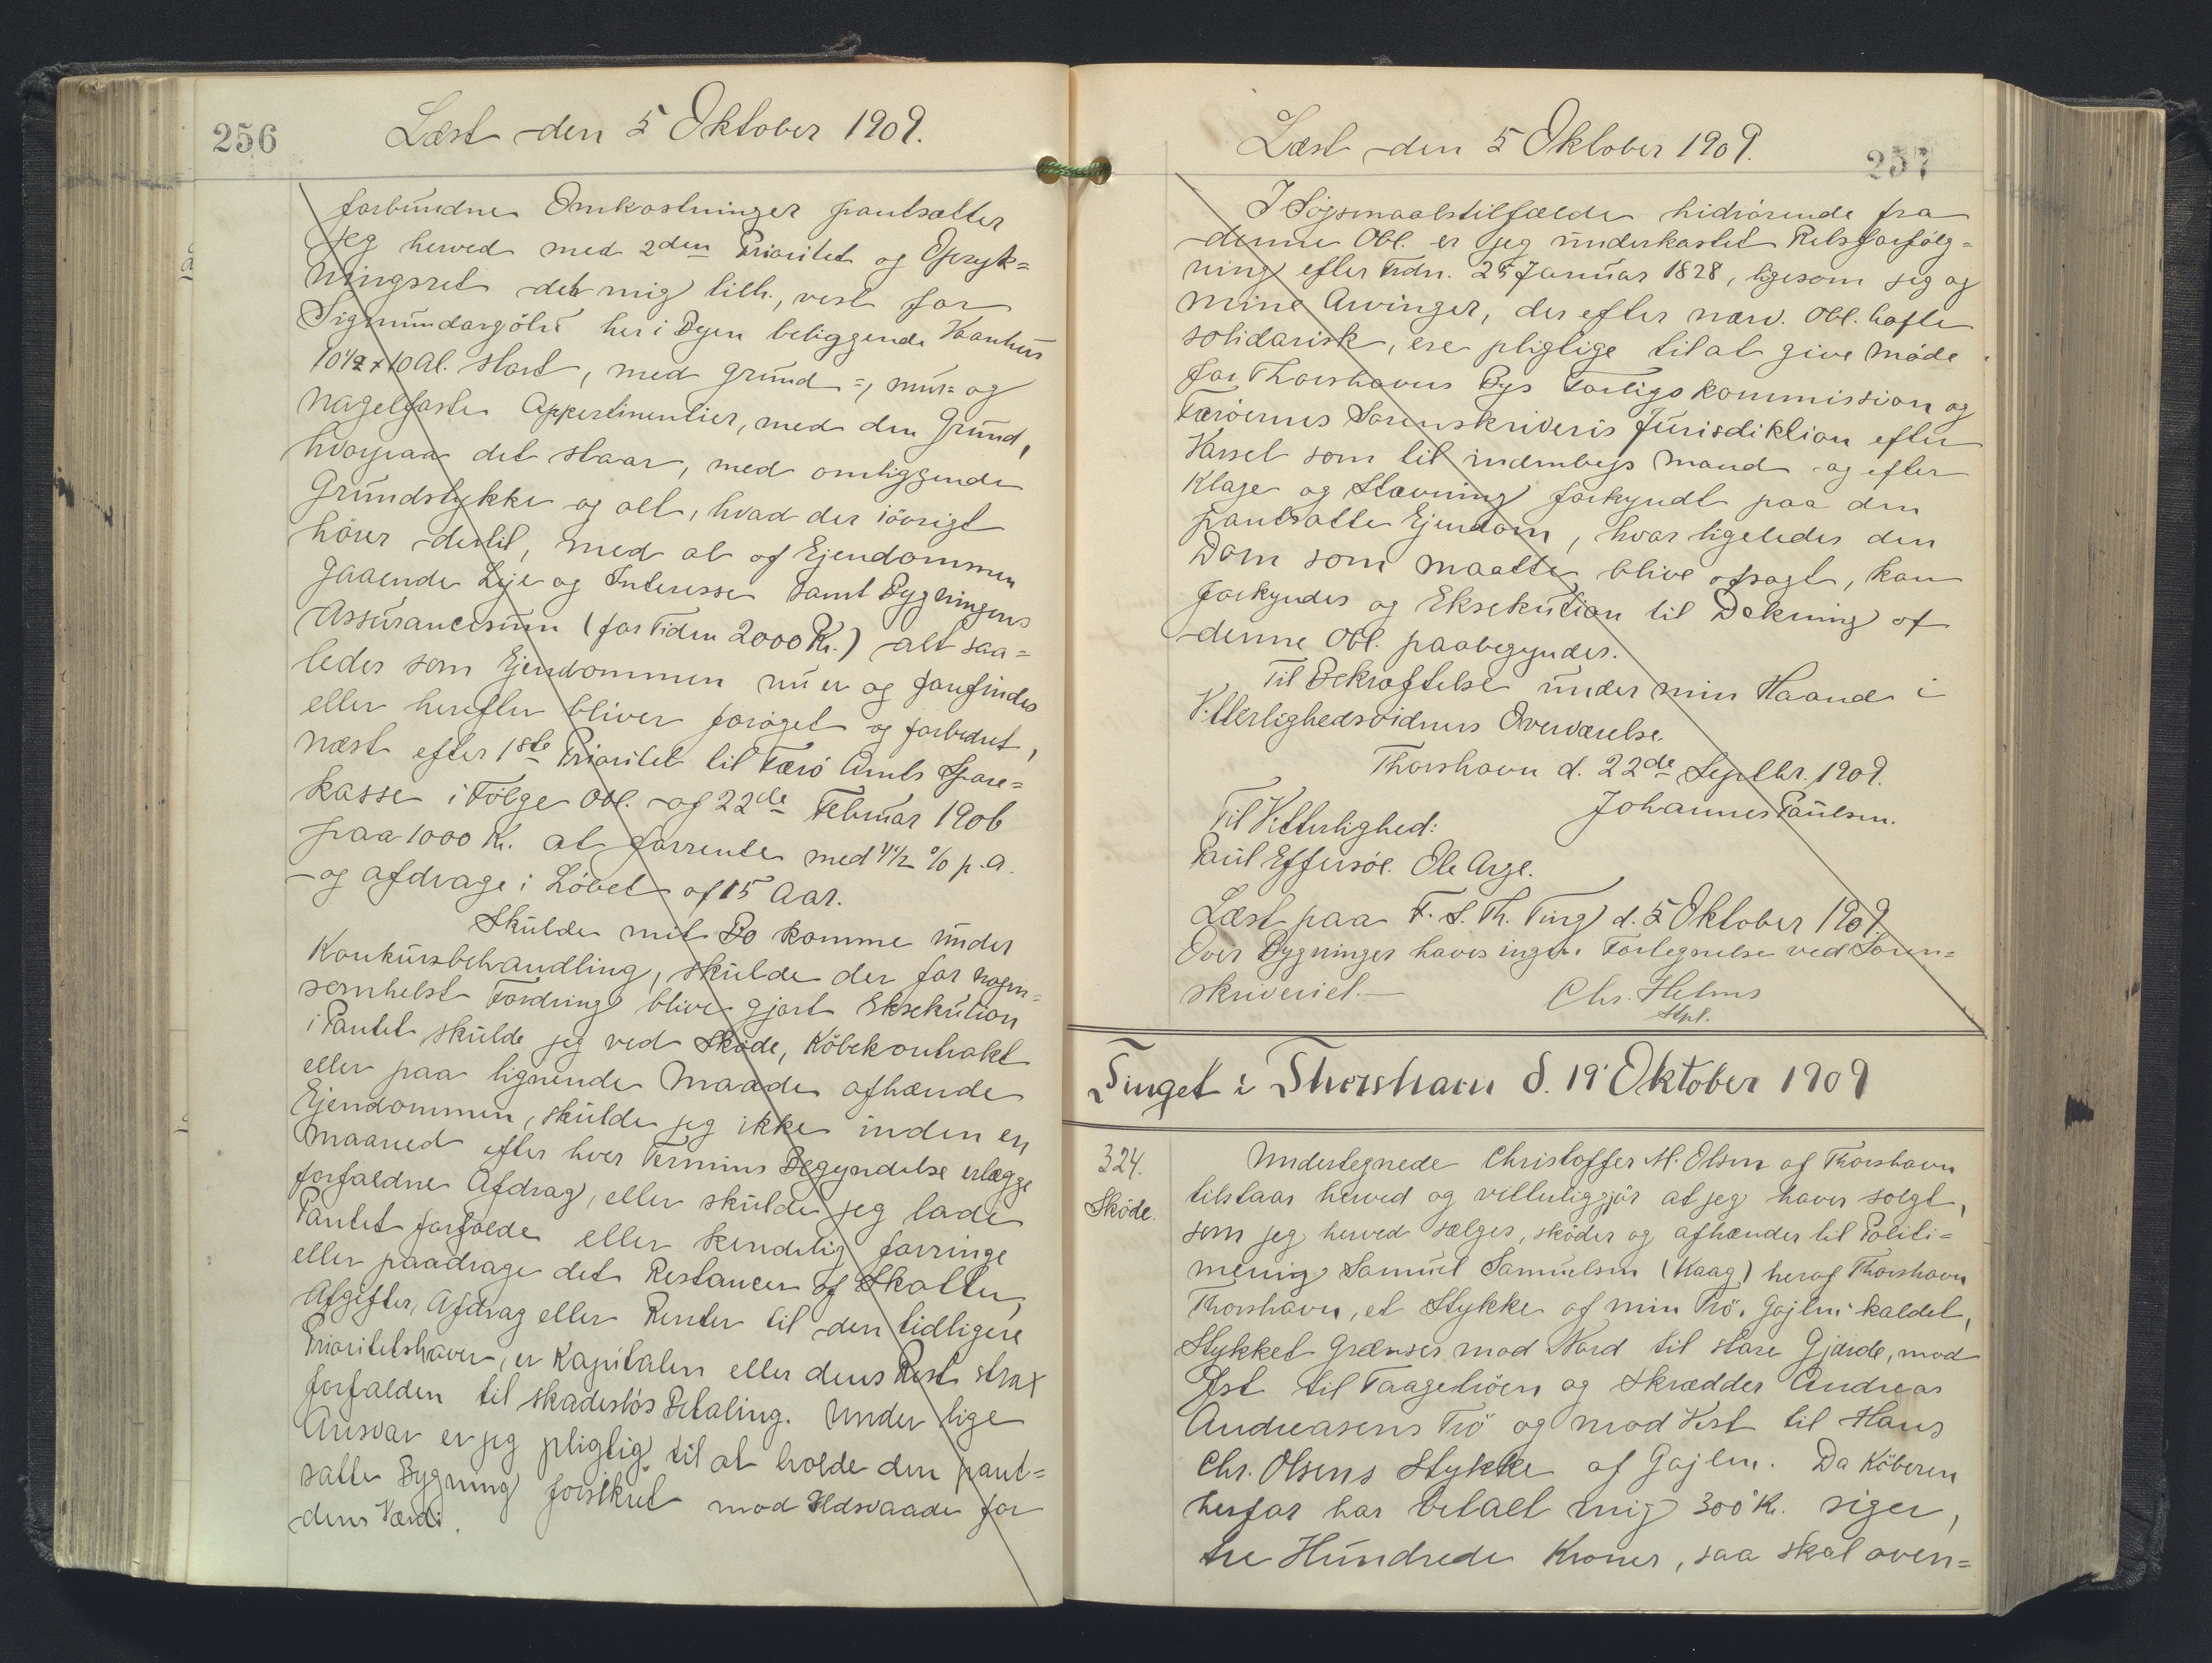 256
Læst den 5 Oktober 1909.
forbundne Omkostninger pantsætter
jeg herved med 2den Prioritet og Opryk=
ningsret det mig tilh., vest for
Sigmundargöta her i Byen beliggende Vaanhus
10½ x 10 Al. stort, med grund=, mur= og
nagelfaste Appertinentier, med den Grund,
hvorpaa det staar, med omliggende
Grundstykke og alt, hvad der iövrigt
hörer dertil, med al af Ejendommen
gaaende Leje og Interesse samt Bygningens
Assurancesum (for Tiden 2000 Kr.) alt saa=
ledes som Ejendommen nu er og forefindes
eller herefter bliver foröget og forbedret,
næst efter 1ste Prioritet til Færö Amts Spare=
kasse i Fölge Obl. af 22de Februar 1906
paa 1000 Kr. at forrente med 4½ % p.a.
og afdrage i Löbet af 15 Aar.
Skulde mit Bo komme under
Konkursbehandling, skulde der for nogen=
somhelst Fordring blive gjort Eksekution
i Pantet skulde jeg ved Sköde, Köbekontrakt
eller paa lignende Maade afhænde
Ejendommen, skulde jeg ikke inden en
Maaned efter hver Termins Begyndelse erlægge
forfaldne Afdrag, eller skulde jeg lade
Pantet forfalde eller kendelig forringe
eller paadrage det Restancer af Skatter,
Afgifter, Afdrag eller Renter til den tidligere
Prioritetshaver, er Kapitalen eller dens Rest strax
forfalden til skadeslös Betaling. Under lige
Ansvar er jeg pligtig til at holde den pant=
satte Bygning forsikret mod Ildsvaade for
dens Værdi.
257
Læst den 5 Oktober 1909.
I Sögsmaalstilfælde hidrörende fra
denne Obl. er jeg underkastet Retsforfölg=
ning efter Frdn. 25 Januar 1828, ligesom jeg og
mine Arvinger, der efter nærv. Obl. hæfte
solidarisk, ere pligtige til at give Möde
for Thorshavns Bys Forligskommission og
Færöernes Sorenskriveris Jurisdiktion efter
Varsel som til indenbys Mand og efter
Klage og Stævning forkyndt paa den
pantsatte Ejendom, hvor ligeledes den
Dom som maatte blive afsagt, kan
forkyndes og Eksekution til Dekning af
denne Obl. paabegyndes.
Til Bekræftelse under min Haand i
Vitterlighedsvidners Overværelse.
Thorshavn d. 22de Septbr. 1909.
Johannes Paulsen.
Til Vitterlighed:
Paul Effersöe. Ole Arge.
Læst paa F. S. Th. Ting d. 5 Oktober 1909.
Over Bygninger haves ingen Fortegnelse ved Soren=
skriveriet.—
Chr. Helms
Stpl.
Tinget i Thorshavn d. 19' Oktober 1909
324.
Sköde.
Undertegnede Christoffer M. Olsen af Thorshavn
tilstaar herved og vitterliggjör at jeg haver solgt,
som jeg herved sælger, sköder og afhænder til Politi=
menig Samuel Samuelsen (Kaag) heraf Thorshavn
Thorshavn, et Stykke af min Trö. Gajlen kaldet,
Stykket grænser mod Nord til store Gjærde, mod
Øst til Taagetröen og Skrædder Andreas
Andreasens Trö og mod Vest til Hans
Chr. Olsens Stykke af Gajlen. Da Köberen
herfor har betalt mig 300 Kr. siger,
tre Hundrede Kroner, saa skal oven=